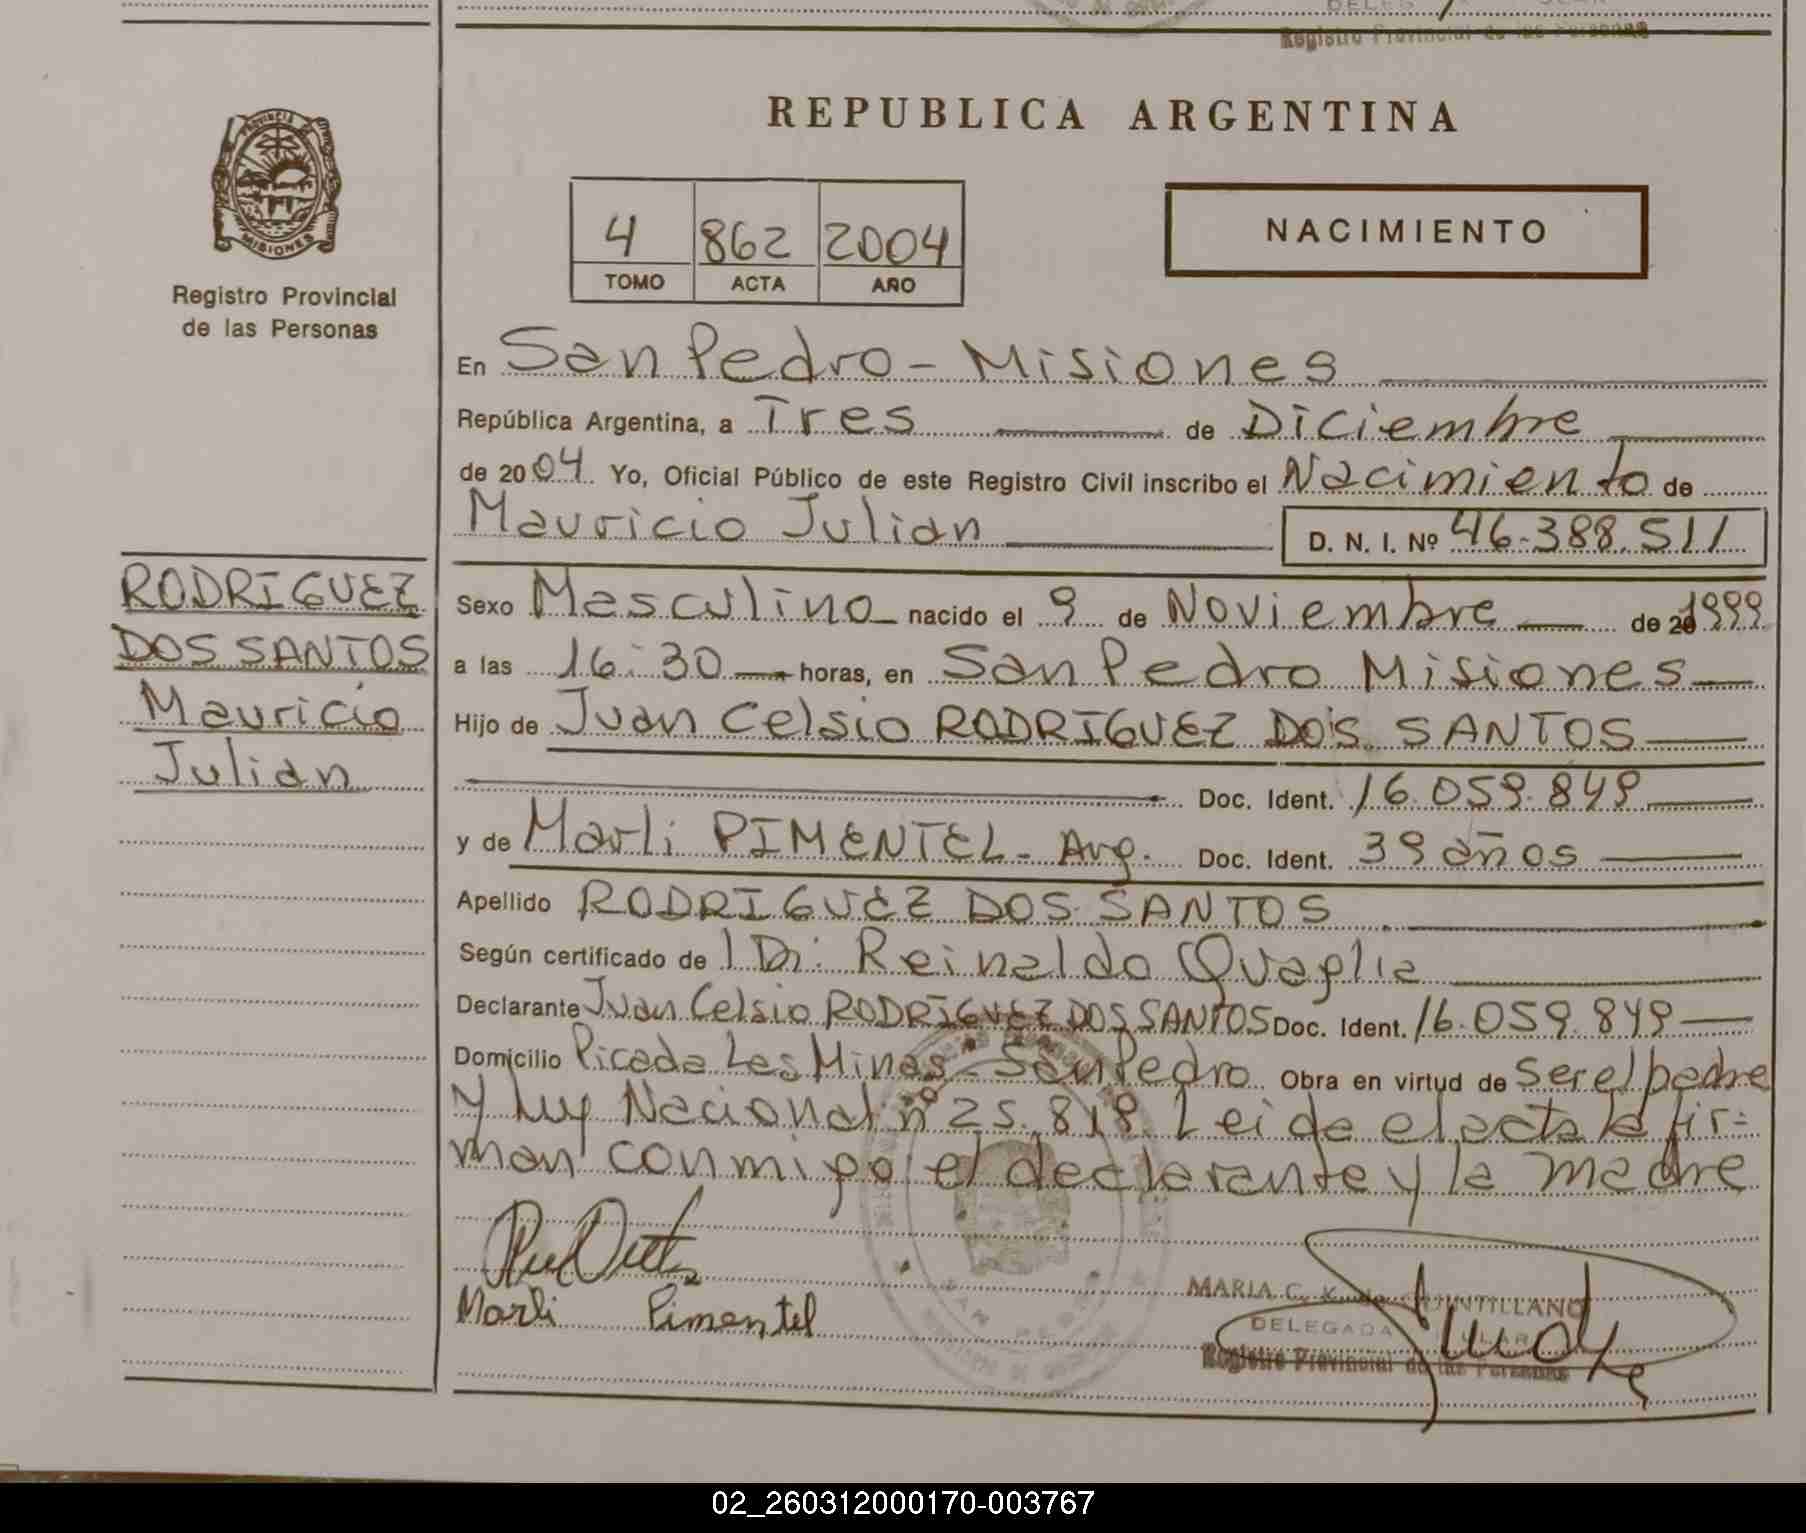 Registro Provincial de las Personas
REPUBLICA ARGENTINA
PROVINCIA DE
MISIONES
Registro Provincial
de las Personas
4 862 2004
TOMO ACTA AÑO
NACIMIENTO
En San Pedro - Misiones
República Argentina, a Tres de Diciembre
de 2004 Yo, Oficial Público de este Registro Civil inscribo el Nacimiento de
Mauricio Julian D. N. I. Nº 46.388.511
RODRIGUEZ
DOS SANTOS
Mauricio
Julian
Sexo Masculino nacido el 9 de Noviembre de 1999
a las 16:30 horas, en San Pedro Misiones
Hijo de Juan Celsio RODRIGUEZ DOS SANTOS
Doc. Ident. 16.059.849
y de Marli PIMENTEL - Arg. Doc. Ident. 39 años
Apellido RODRIGUEZ DOS SANTOS
Según certificado de Dr: Reinaldo Quaglia
Declarante Juan Celsio RODRIGUEZ DOS SANTOS Doc. Ident. 16.059.849
Domicilio Picada Las Minas - San Pedro Obra en virtud de ser el padre
y Ley Nacional nº 25.819 Leida el acta la fir=
man conmigo el declarante y la madre
Marli Pimentel
MARIA C. QUINTILLANO
DELEGADA TITULAR
Registro Provincial de las Personas
02_260312000170-003767